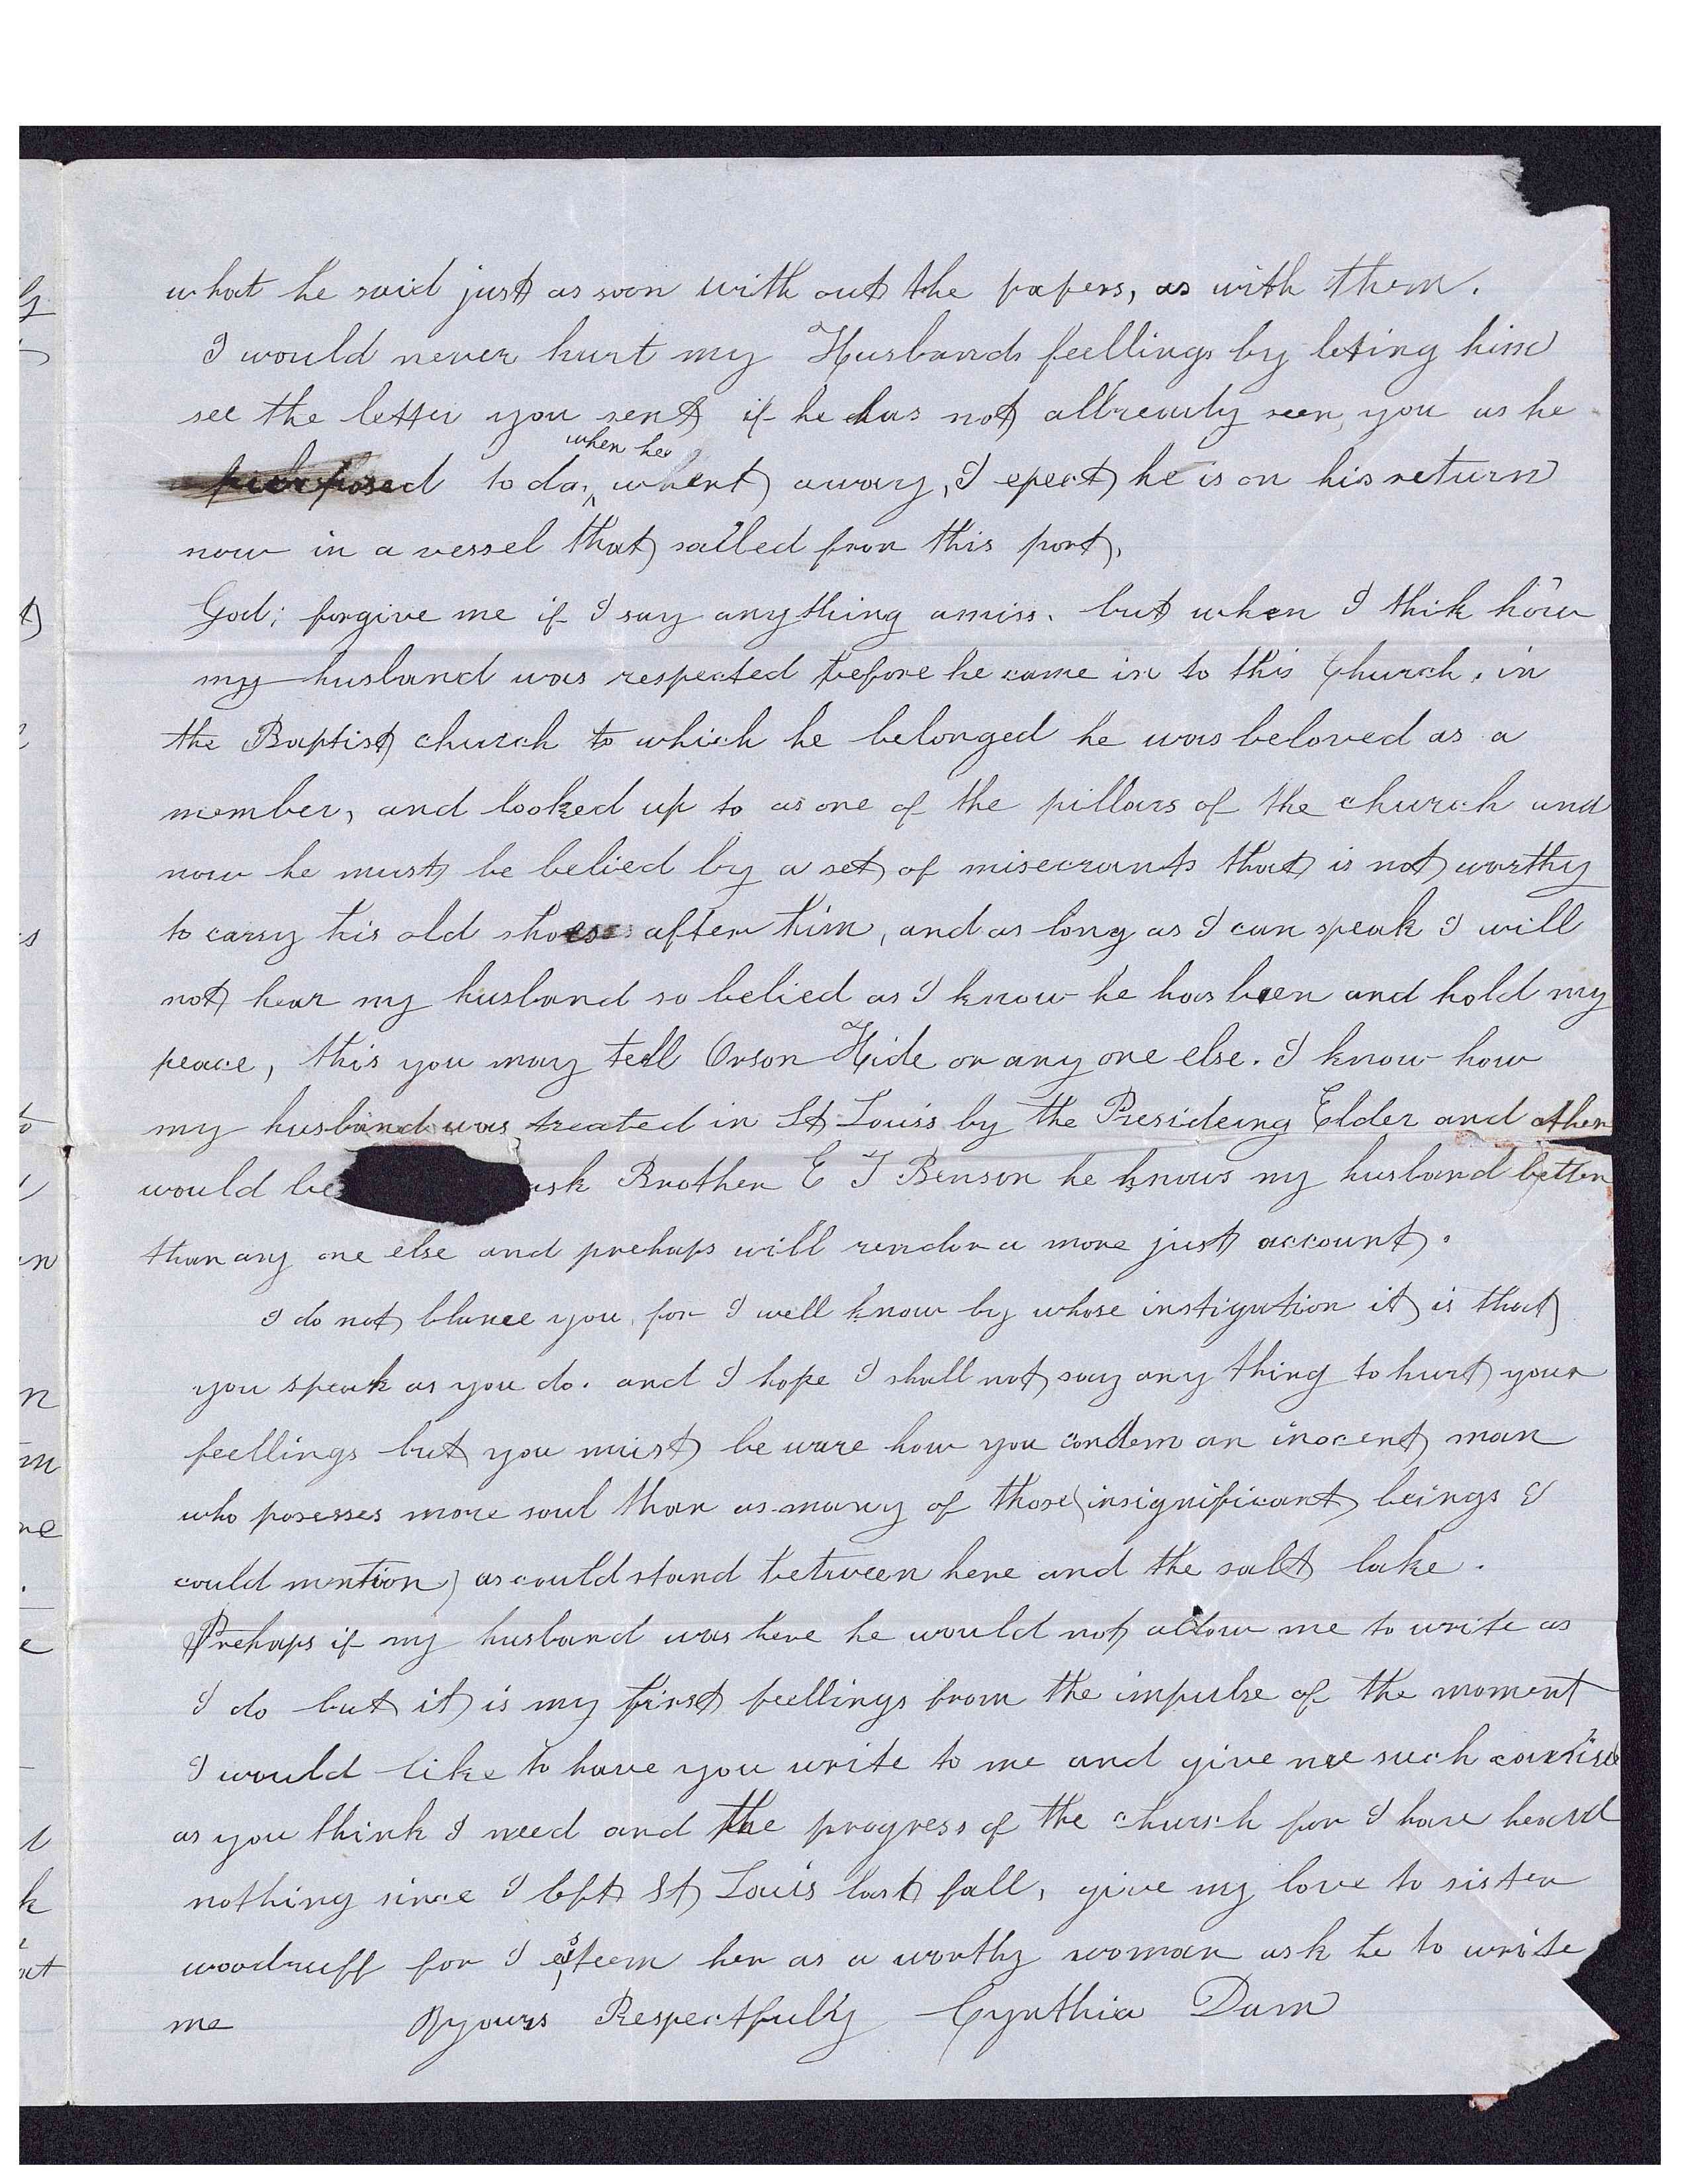 what he said just as soon with out the papers, as with them.
I would never hurt my Husbands feellings by leting him
see the letter you sent if he has not allready seen, you as he
when he
purposed to do, whent away, I epect he is on his return
now in a vessel that sailled from this port,
God; forgive me if I say anything amiss. but when I thik how
my husband was respected before he came in to this Church. in
the Baptist church to which he belonged he was beloved as a
member, and looked up to as one of the pillars of the church and
now he must be belied by a set of misecrants that is not worthy
to carry his old shoes after him, and as long as I can speak I will
not hear my husband so belied as I know he has been and hold my
peace, this you may tell Orson Hide or any one else. I know how
my husband was treated in St Louis by the Presideing Elder and other
would be ask Brother E T Benson he knows my husband better
than any one else and prehaps will rendor a more just account.
I do not blame you, for I well know by whose instigation it is that
you speak as you do. and I hope I shall not say any thing to hurt your
feellings but you must be ware how you condem an inocent man
who posesses more soul than as many of those (insignificant beings I
could mention) as could stand between here and the salt lake.
Prehaps if my husband was here he would not allow me to write as
I do but it is my first feellings from the impulse of the moment
I would like to have you write to me and give me such
as you think I need and the progress of the church for I have heard
nothing since I left St Louis last fall, give my love to sister
woodruff for I esteem her as a worthy woman ask he to write
me yours Respectfully Cynthia Dam